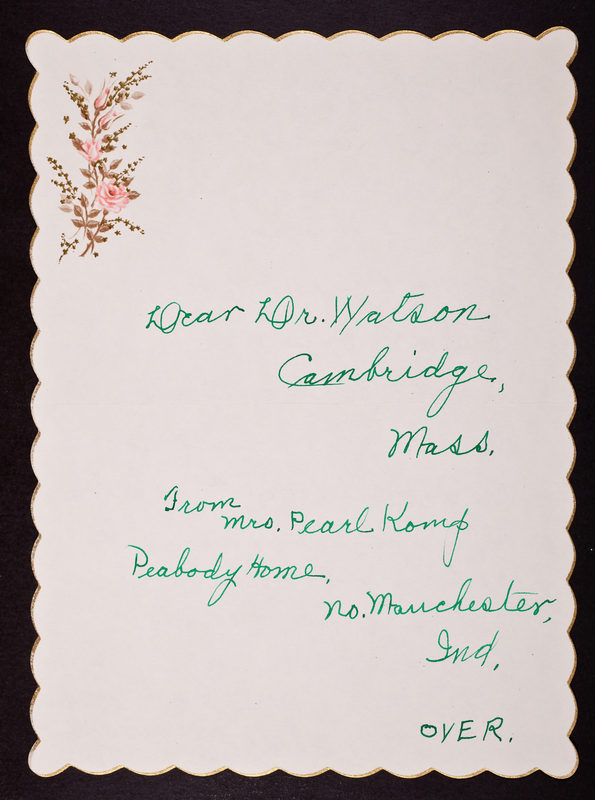 Dear Dr. Watson
Cambridge,
Mass.
From
Mrs. Pearl Komp
Peabody Home.
No. Manchester,
Ind.
OVER.